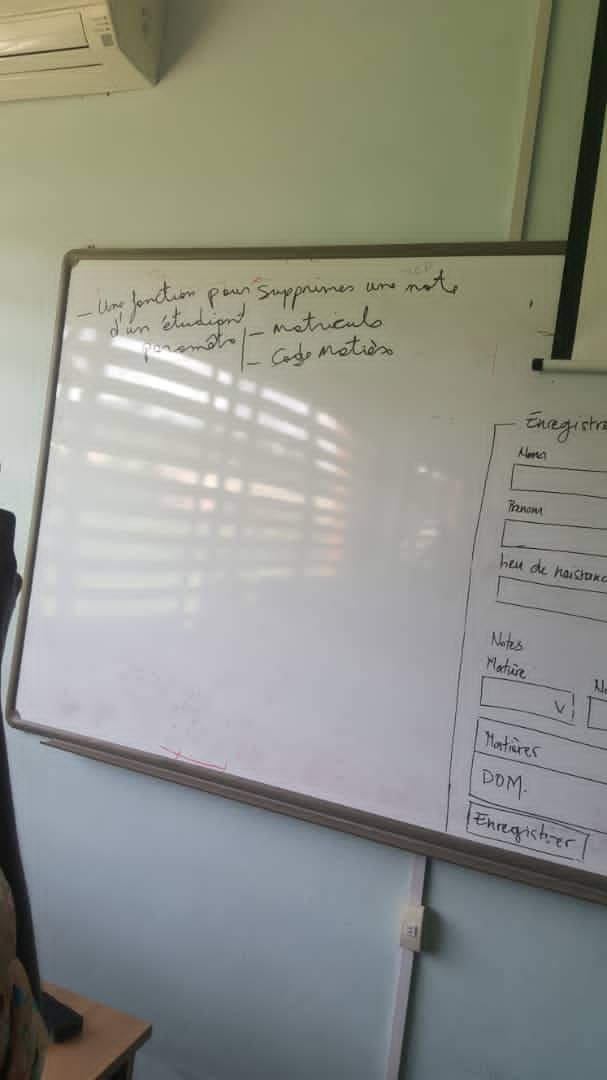 - Une fonction pour supprimer une note
d'un étudiant
paramèts | - matricule
- Code Matière
Enregistra
Nom
Prenom
Lieu de naissanc
Notes
Matière
No
V
Matières
DOM.
Enregistrer